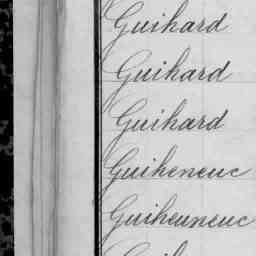 Guihard
Guihard
Guihard
Guiheneuc
Guiheuneuc